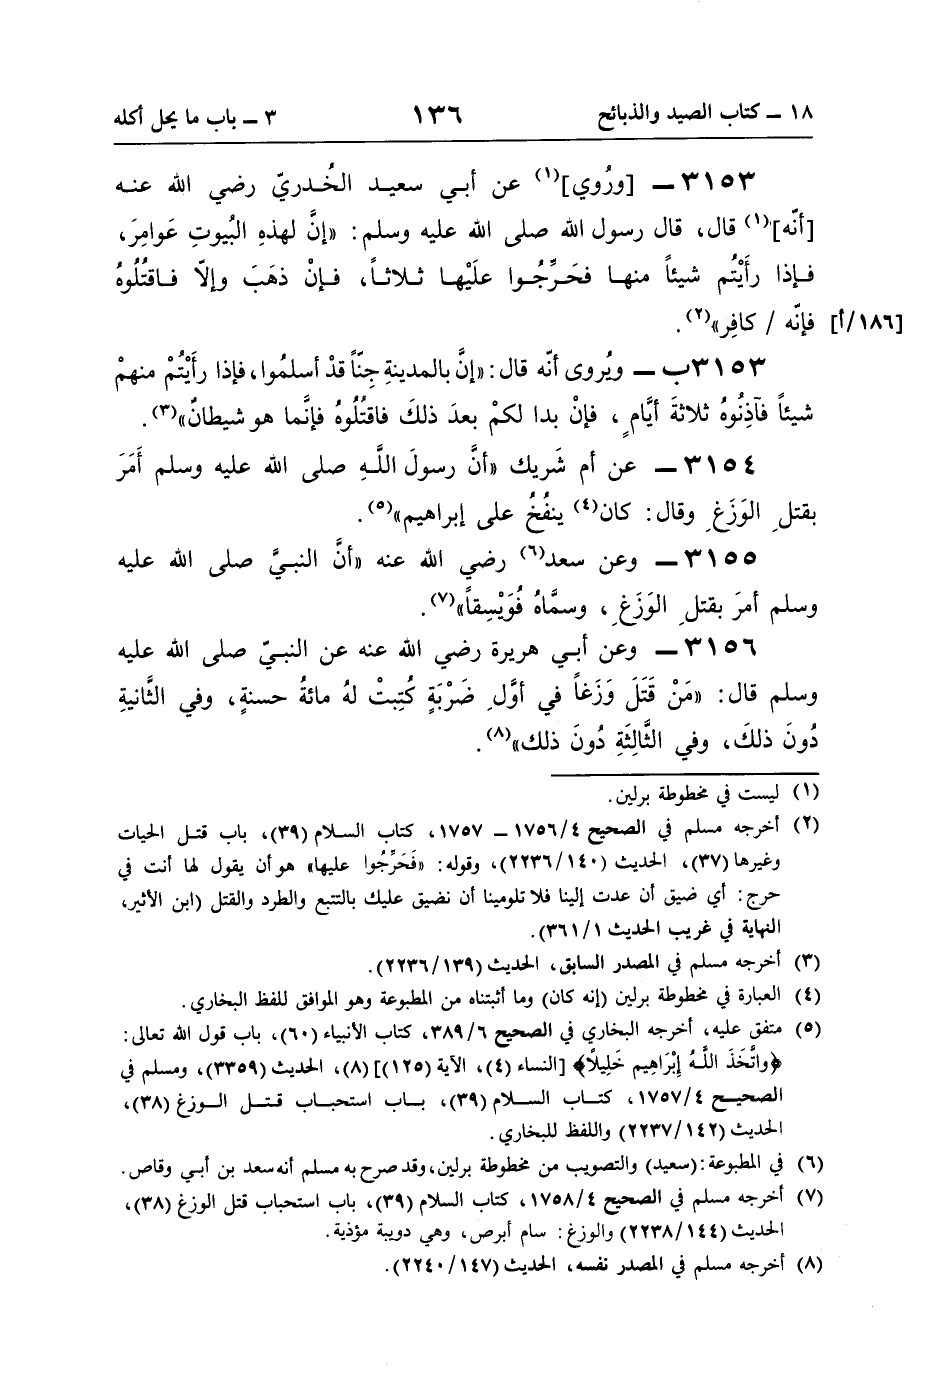 ١٨ ـ كتاب الصيد والذبائح ١٣٦ ٣ ـ باب ما يحل أكله
٣١٥٣ ـ [ورُوي](١) عن أبي سعيد الخُدريّ رضي الله عنه
[أنّه](١) قال، قال رسول الله صلى الله عليه وسلم: «إنَّ لهذهِ البُيوتِ عَوامِرَ،
فإذا رأَيْتُم شيئاً منها فحَرِّجُوا عليْها ثلاثاً، فإنْ ذهَبَ وإلّا فاقتُلُوهُ
[١٨٦/أ] فإنّه / كافِر»(٢).
٣١٥٣ب ـ ويُروى أنّه قال: «إنَّ بالمدينةِ جِنّاً قدْ أسلمُوا، فإذا رأَيْتُمْ منهمْ
شيئاً فآذِنُوهُ ثلاثةَ أيَّامٍ، فإنْ بدا لكمْ بعدَ ذلكَ فاقتُلُوهُ فإنَّما هو شيطانٌ»(٣).
٣١٥٤ ـ عن أم شَريك «أنَّ رسولَ اللَّهِ صلى الله عليه وسلم أَمَرَ
بقتلِ الوَزَغِ وقال: كان(٤) ينفُخُ على إبراهيم»(٥).
٣١٥٥ ـ وعن سعد(٦) رضي الله عنه «أنَّ النبيَّ صلى الله عليه
وسلم أمرَ بقتلِ الوَزَغِ، وسمَّاهُ فُوَيْسِقاً»(٧).
٣١٥٦ ـ وعن أبي هريرة رضي الله عنه عن النبيّ صلى الله عليه
وسلم قال: «مَنْ قَتَلَ وَزَغاً في أوَّلِ ضَرْبَةٍ كُتِبتْ لهُ مائةُ حسنةٍ، وفي الثَّانيةِ
دُونَ ذلكَ، وفي الثَّالِثَةِ دُونَ ذلك»(٨).
(١) ليست في مخطوطة برلين.
(٢) أخرجه مسلم في الصحيح ١٧٥٦/٤ ـ ١٧٥٧، كتاب السلام (٣٩)، باب قتل الحيات
وغيرها (٣٧)، الحديث (٢٢٣٦/١٤٠)، وقوله: «فَحَرِّجُوا عليها» هو أن يقول لها أنت في
حرج: أي ضيق أن عدت إلينا فلا تلومينا أن نضيق عليك بالتتبع والطرد والقتل (ابن الأثير،
النهاية في غريب الحديث ٣٦١/١).
(٣) أخرجه مسلم في المصدر السابق، الحديث (٢٢٣٦/١٣٩).
(٤) العبارة في مخطوطة برلين (إنه كان) وما أثبتناه من المطبوعة وهو الموافق للفظ البخاري.
(٥) متفق عليه، أخرجه البخاري في الصحيح ٣٨٩/٦، كتاب الأنبياء (٦٠)، باب قول الله تعالى:
﴿واتَّخَذَ اللَّهُ إبْرَاهِيم خَلِيلًا﴾ [النساء (٤)، الآية (١٢٥)] (٨)، الحديث (٣٣٥٩)، ومسلم في
الصحيح ١٧٥٧/٤، كتاب السلام (٣٩)، باب استحباب قتل الوزغ (٣٨)،
الحديث (٢٢٣٧/١٤٢) واللفظ للبخاري.
(٦) في المطبوعة: (سعيد) والتصويب من مخطوطة برلين، وقد صرح به مسلم أنه سعد بن أبي وقاص.
(٧) أخرجه مسلم في الصحيح ١٧٥٨/٤، كتاب السلام (٣٩)، باب استحباب قتل الوزغ (٣٨)،
الحديث (٢٢٣٨/١٤٤) والوزغ: سام أبرص، وهي دويبة مؤذية.
(٨) أخرجه مسلم في المصدر نفسه، الحديث (٢٢٤٠/١٤٧).